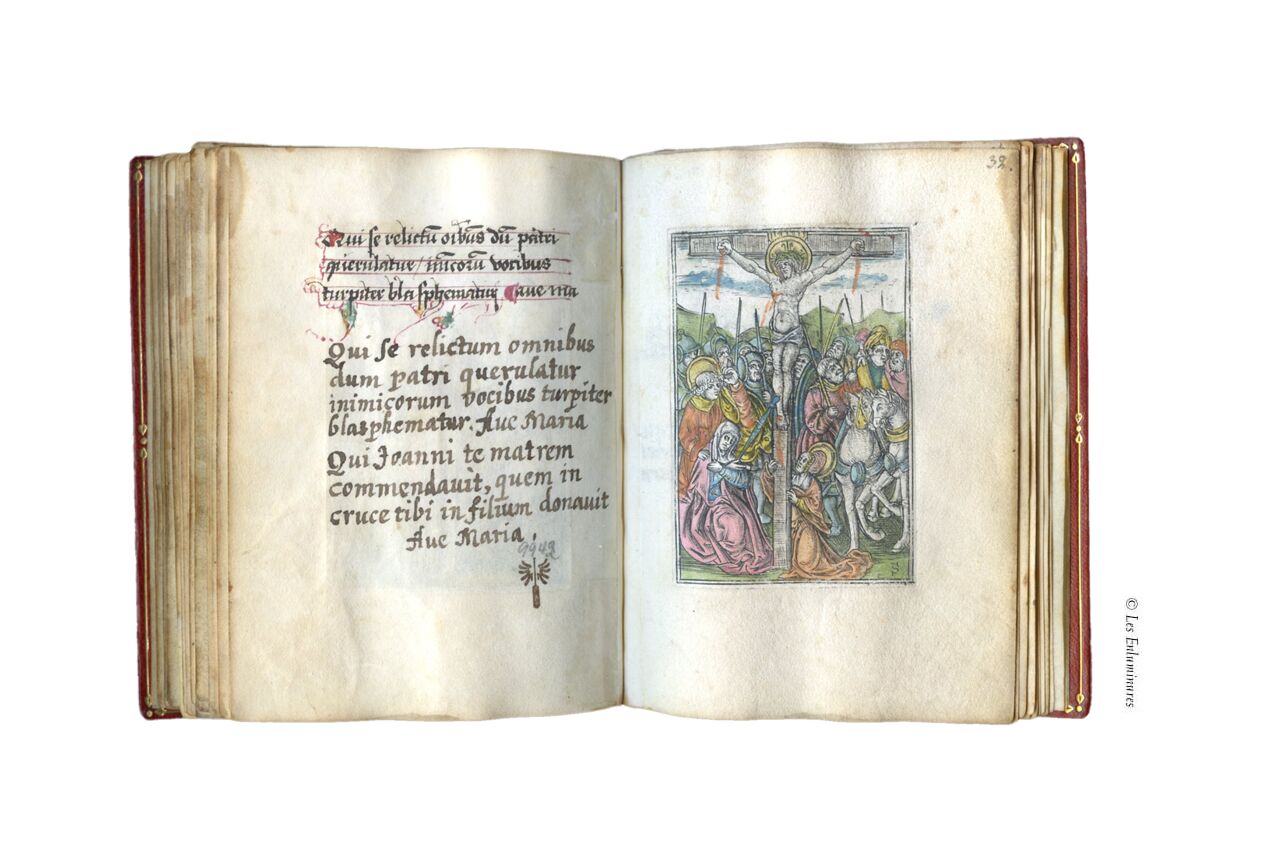 Qui se relictū oībus dū patri
querulatur / inīicorū vocibus
turpiter blasphematur aue ma
Qui se relictum omnibus
dum patri querulatur
inimicorum vocibus turpiter
blasphematur. Aue Maria
Qui Joanni te matrem
commendauit, quem in
cruce tibi in filium donauit
Aue Maria.
9948
32.
S
© Les Enluminures